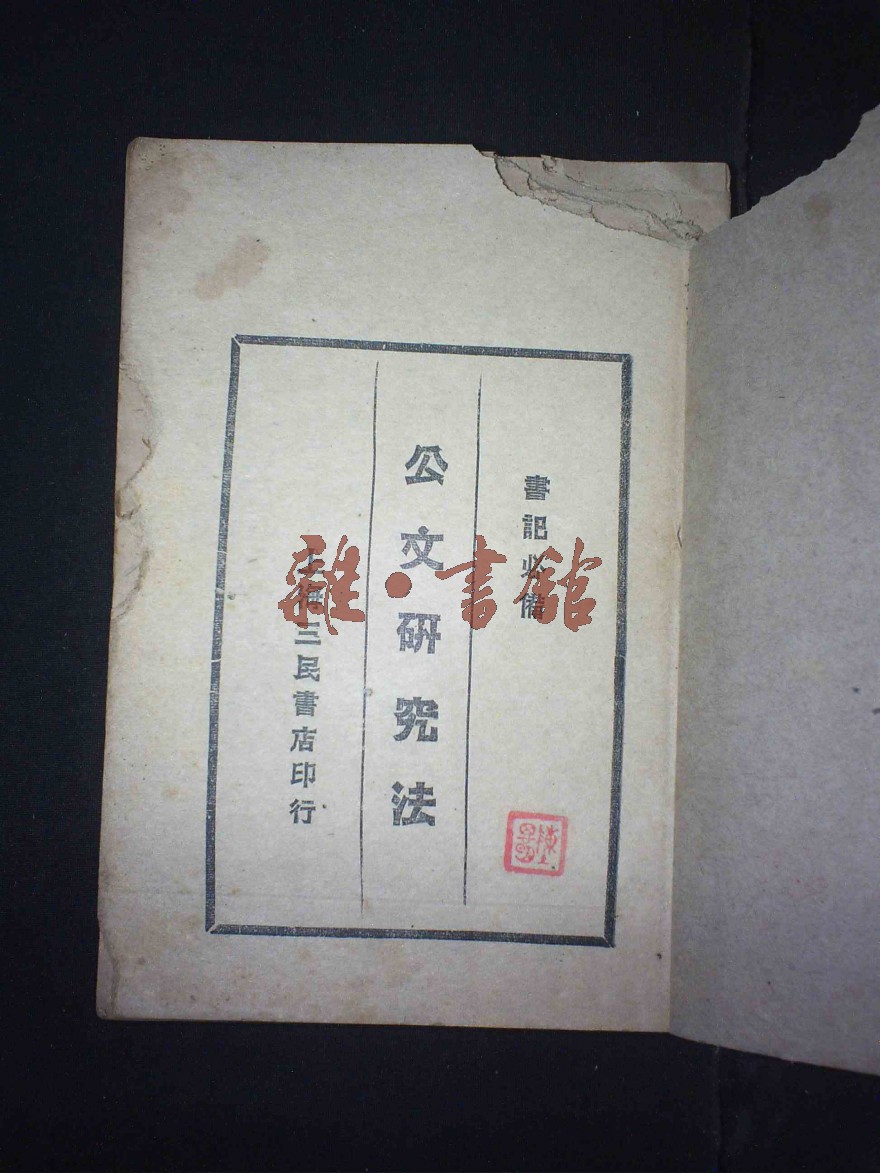 書記必備
公文研究法
上海三民書店印行
雜·書館